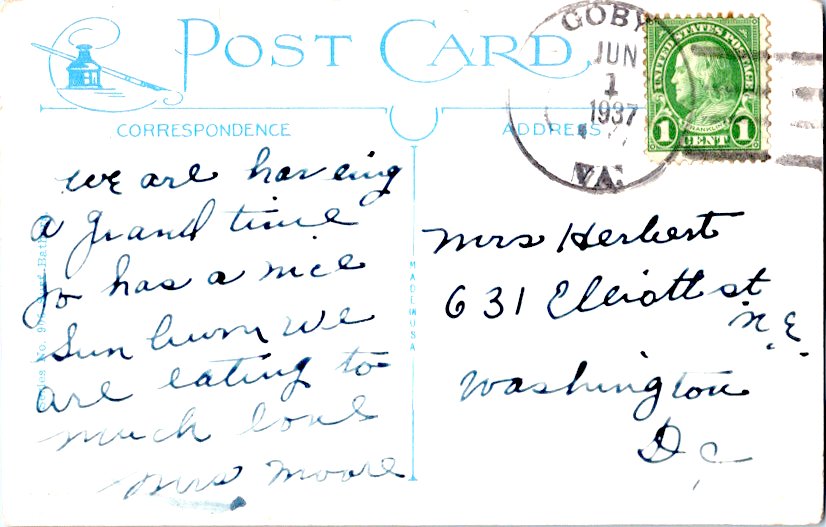 POST CARD
CORRESPONDENCE
ADDRESS
GOBY
JUN
1
1937
VA.
UNITED STATES POSTAGE
FRANKLIN
1 CENT 1
we are haveing
a grand time
Jo has a nice
Sun burn we
are eating to
much love
Mrs Moore
MADE IN USA
Mrs Herbert
631 Elliott st
N.E.
Washington
Dc